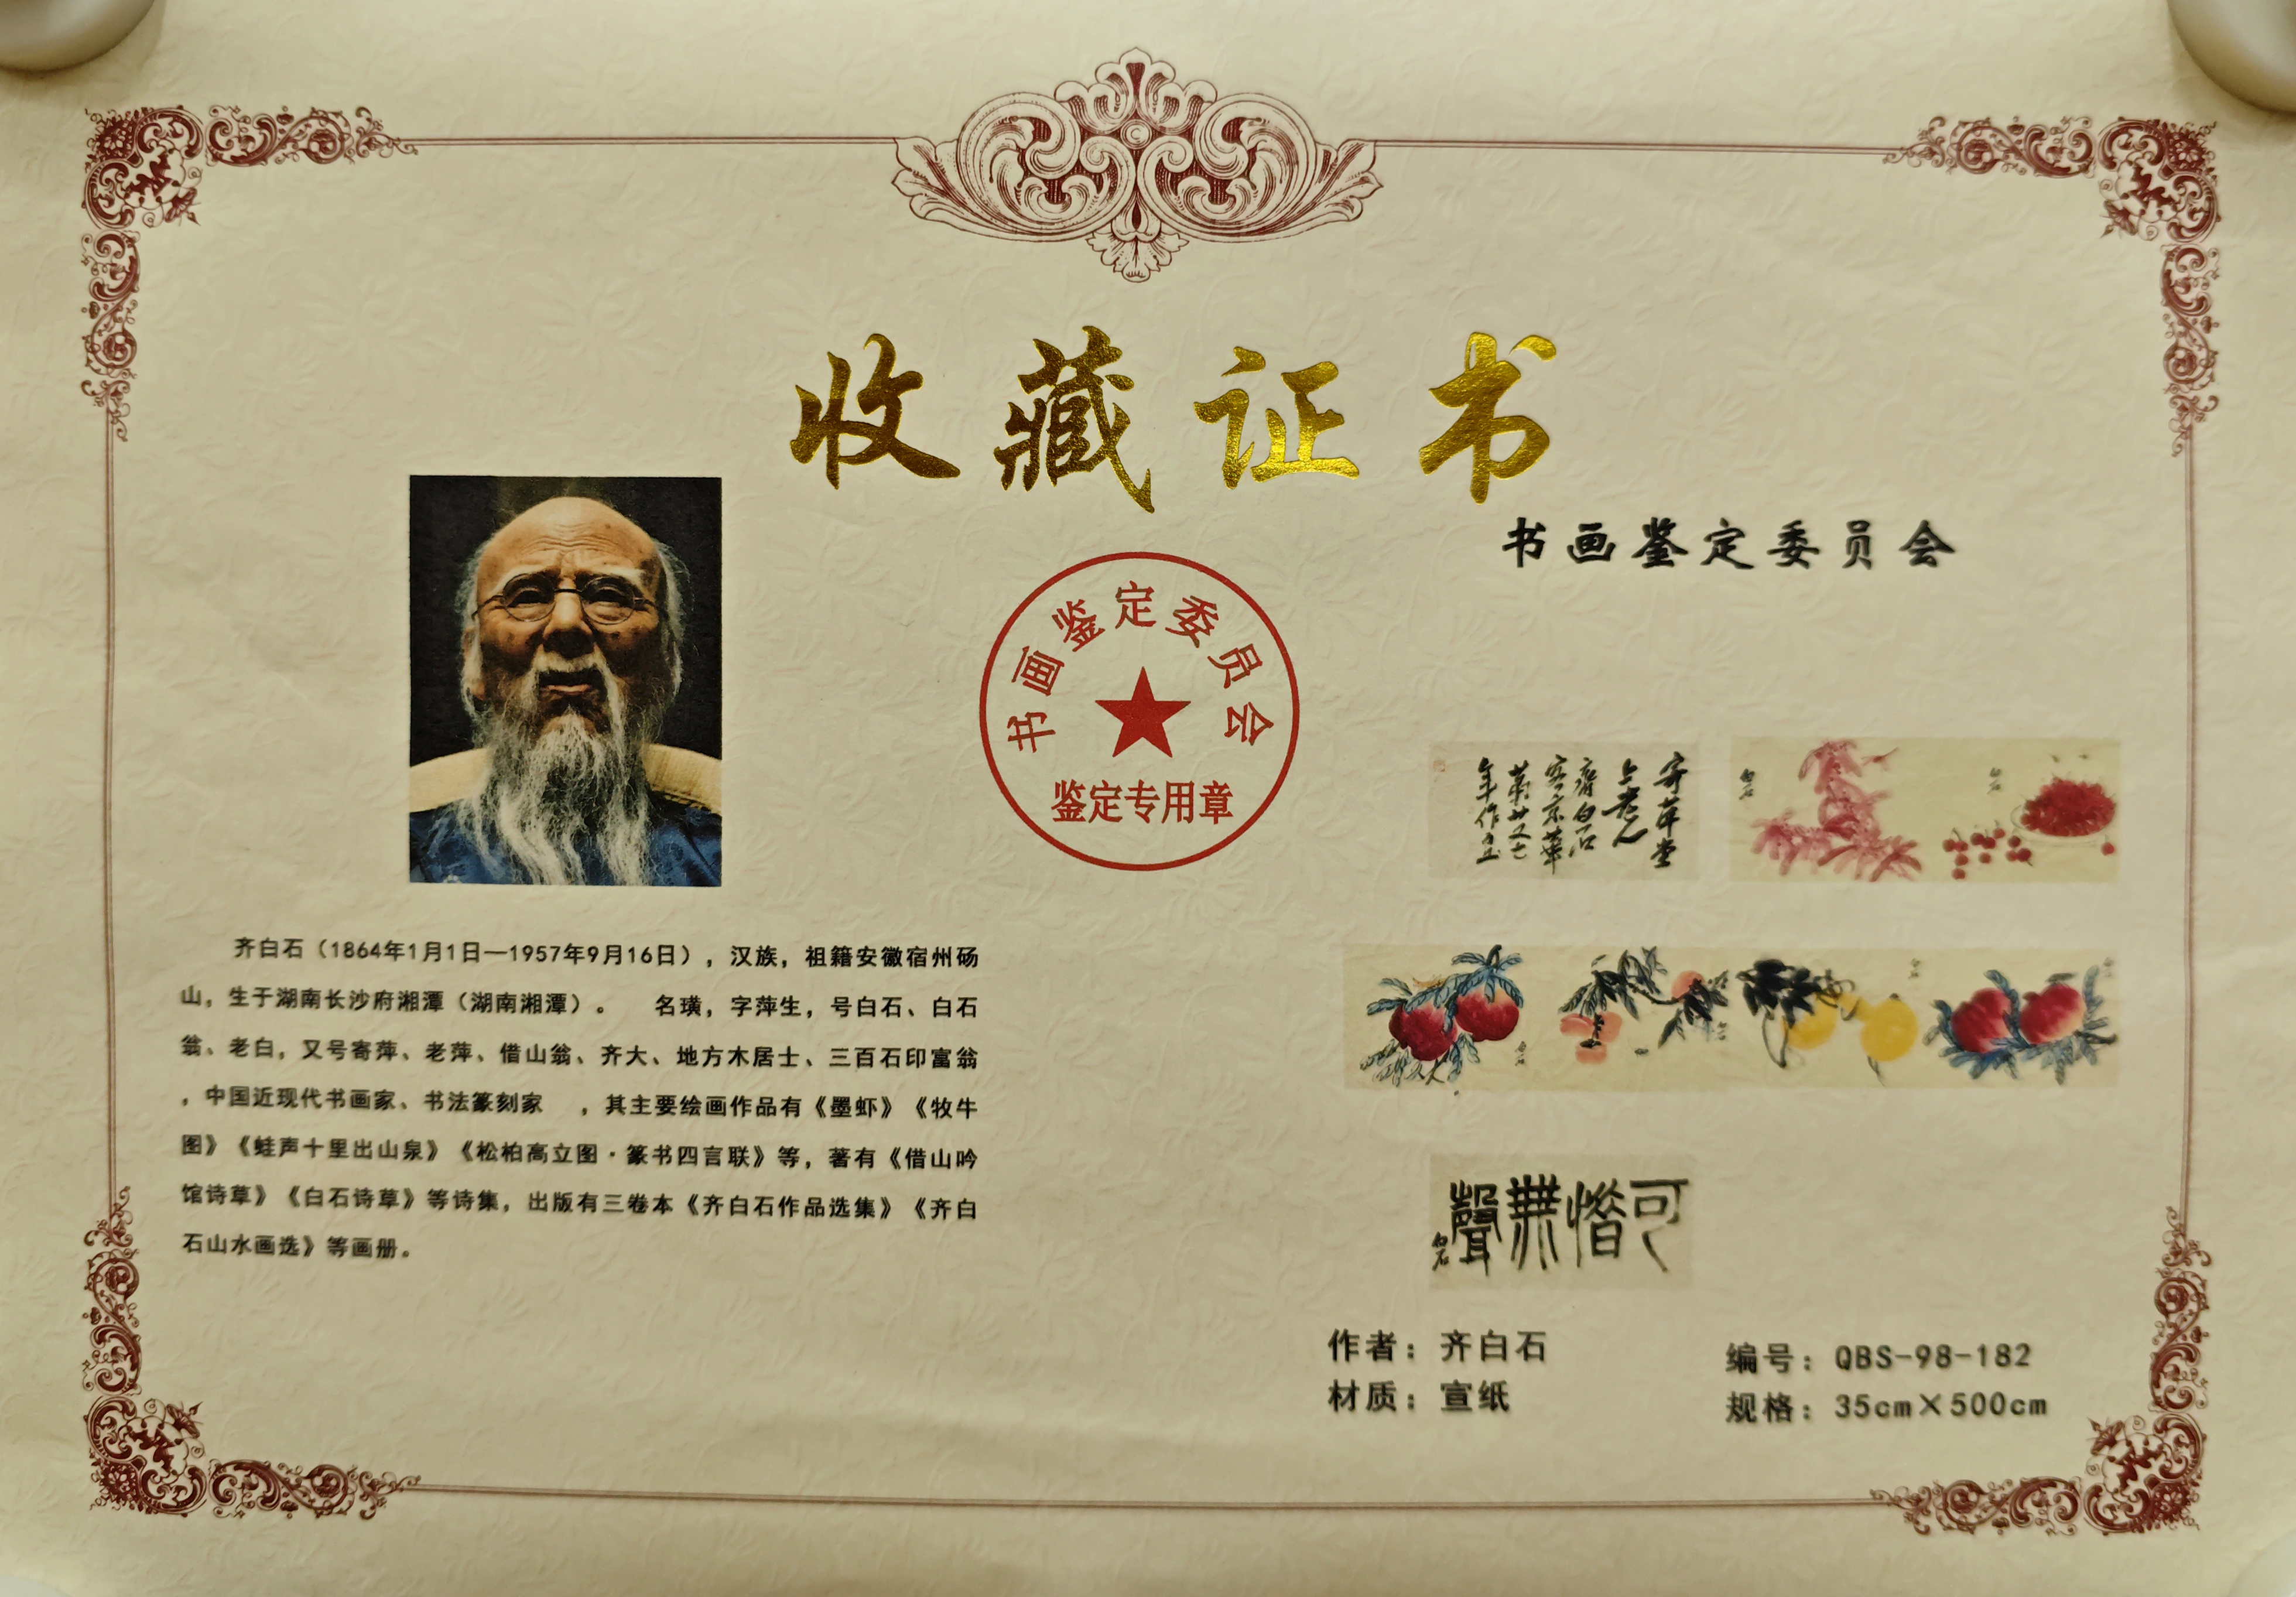 收藏证书
书画鉴定委员会
书画鉴定委员会
鉴定专用章
齐白石（1864年1月1日—1957年9月16日），汉族，祖籍安徽宿州砀
山，生于湖南长沙府湘潭（湖南湘潭）。 名璜，字萍生，号白石、白石
翁、老白，又号寄萍、老萍、借山翁、齐大、地方木居士、三百石印富翁
，中国近现代书画家、书法篆刻家 ，其主要绘画作品有《墨虾》《牧牛
图》《蛙声十里出山泉》《松柏高立图·篆书四言联》等，著有《借山吟
馆诗草》《白石诗草》等诗集，出版有三卷本《齐白石作品选集》《齐白
石山水画选》等画册。
寄萍堂
上老人
齐白石
客京華
第廿又七
年作
白石
白石
可惜無聲
白石
作者：齐白石
材质：宣纸
编号：QBS-98-182
规格：35cm×500cm